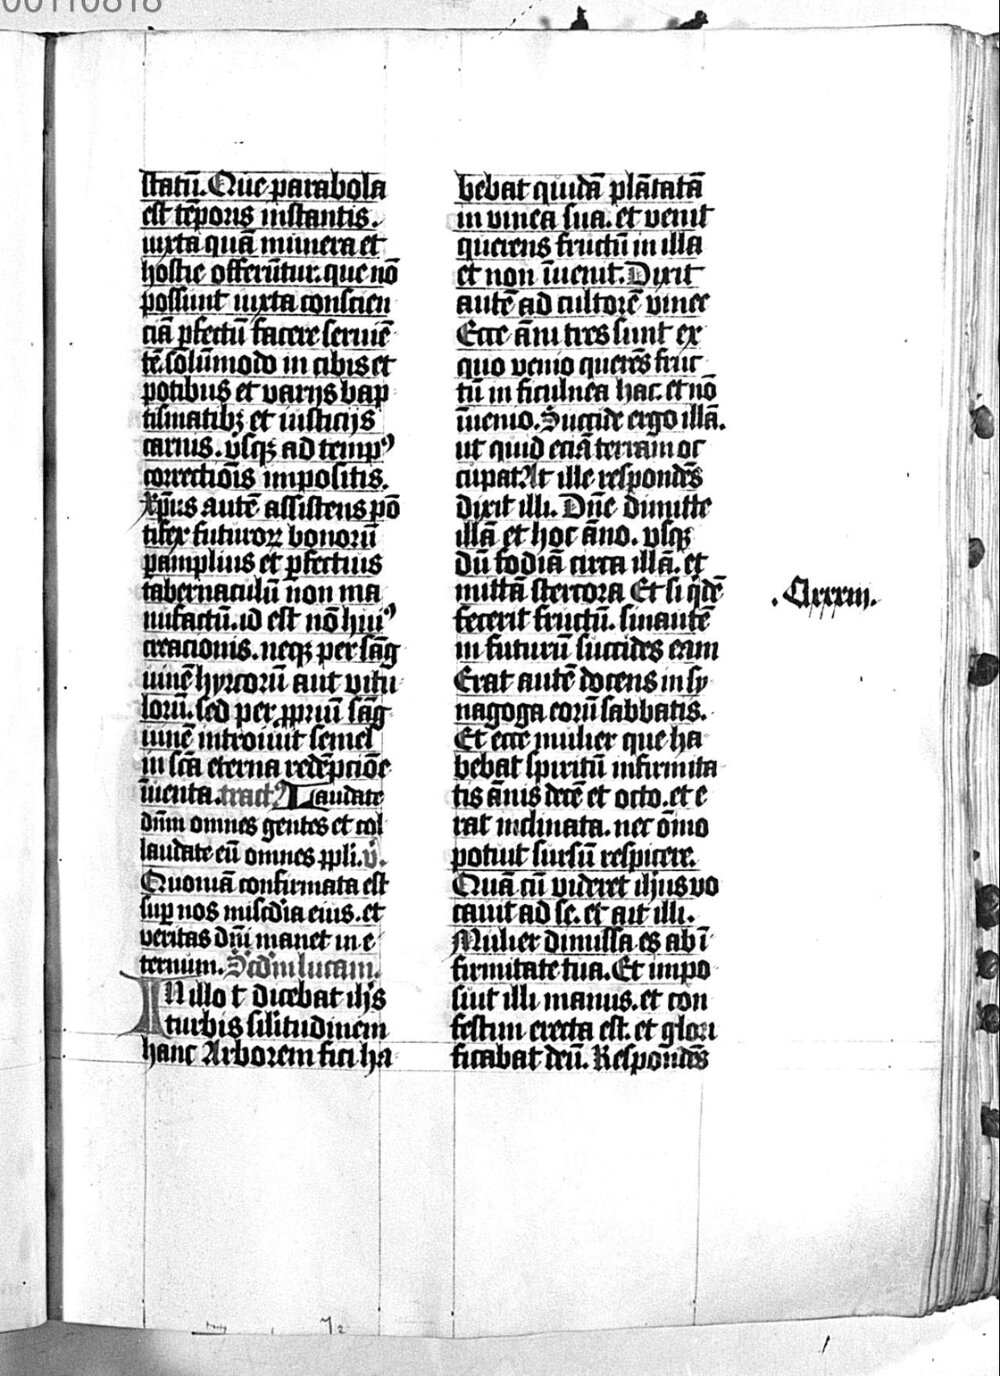 00110818
statū. Que parabola
est tēporis instantis.
iuxta quā munera et
hostie offerūtur. que nō
possunt iuxta conscien
ciā pfectū facere seruiē
tē. solūmodo in cibis et
potibus et varijs bap
tismatibꝫ et iusticijs
carnis. vsqꝫ ad tempꝰ
correctiōis impositis.
Xp̄us autē assistens pō
tifex futuroꝝ bonorū
p ampluus et pfectius
tabernaculū non ma
nufactū. id est nō huiꝰ
creacionis. neqꝫ per sāg
uinē hyrcorū aut vitu
lorū. sed per ꝓpriū sāg
uinē introiuit semel
in scā eterna redēpciōe
īuenta. tractꝰ Laudate
dn̄m omnes gentes et col
laudate eū omnes ppli. v̄.
Quoniā confirmata est
sup nos misc̄dia eius. et
veritas dn̄i manet in e
ternum. Sc̄dm lucam.
IN illo t̄ dicebat ih̄s
turbis silitudinem
hanc Arborem fici ha
bebat quidā plātatā
in vinea sua. et venit
querens fructū in illa
et non īuenit. Dixit
autē ad cultorē vinee
Ecce āni tres sunt ex
quo venio querēs fruc
tū in ficulnea hac. et nō
īuenio. Succide ergo illā.
ut quid eciā terram oc
cupat At ille respondēs
dixit illi. Dn̄e dimitte
illā et hoc āno. vsqꝫ
dū fodiā circa illā. et
mittā stercora Et si qidē
fecerit fructū. sinautē
in futurū succides eam
Erat autē docens in sy
nagoga eorū sabbatis.
Et ecce mulier que ha
bebat spiritū infirmita
tis ānis decē et octo. et e
rat inclinata. nec ōnio
potuit sursū respicere.
Quā cū videret ih̄us vo
cauit ad se. et ait illi.
Mulier dimissa es ab ī
firmitate tua. Et impo
suit illi manus. et con
festim erecta est. et glori
ficabat deū. Respondēs
.Clxxxiii.